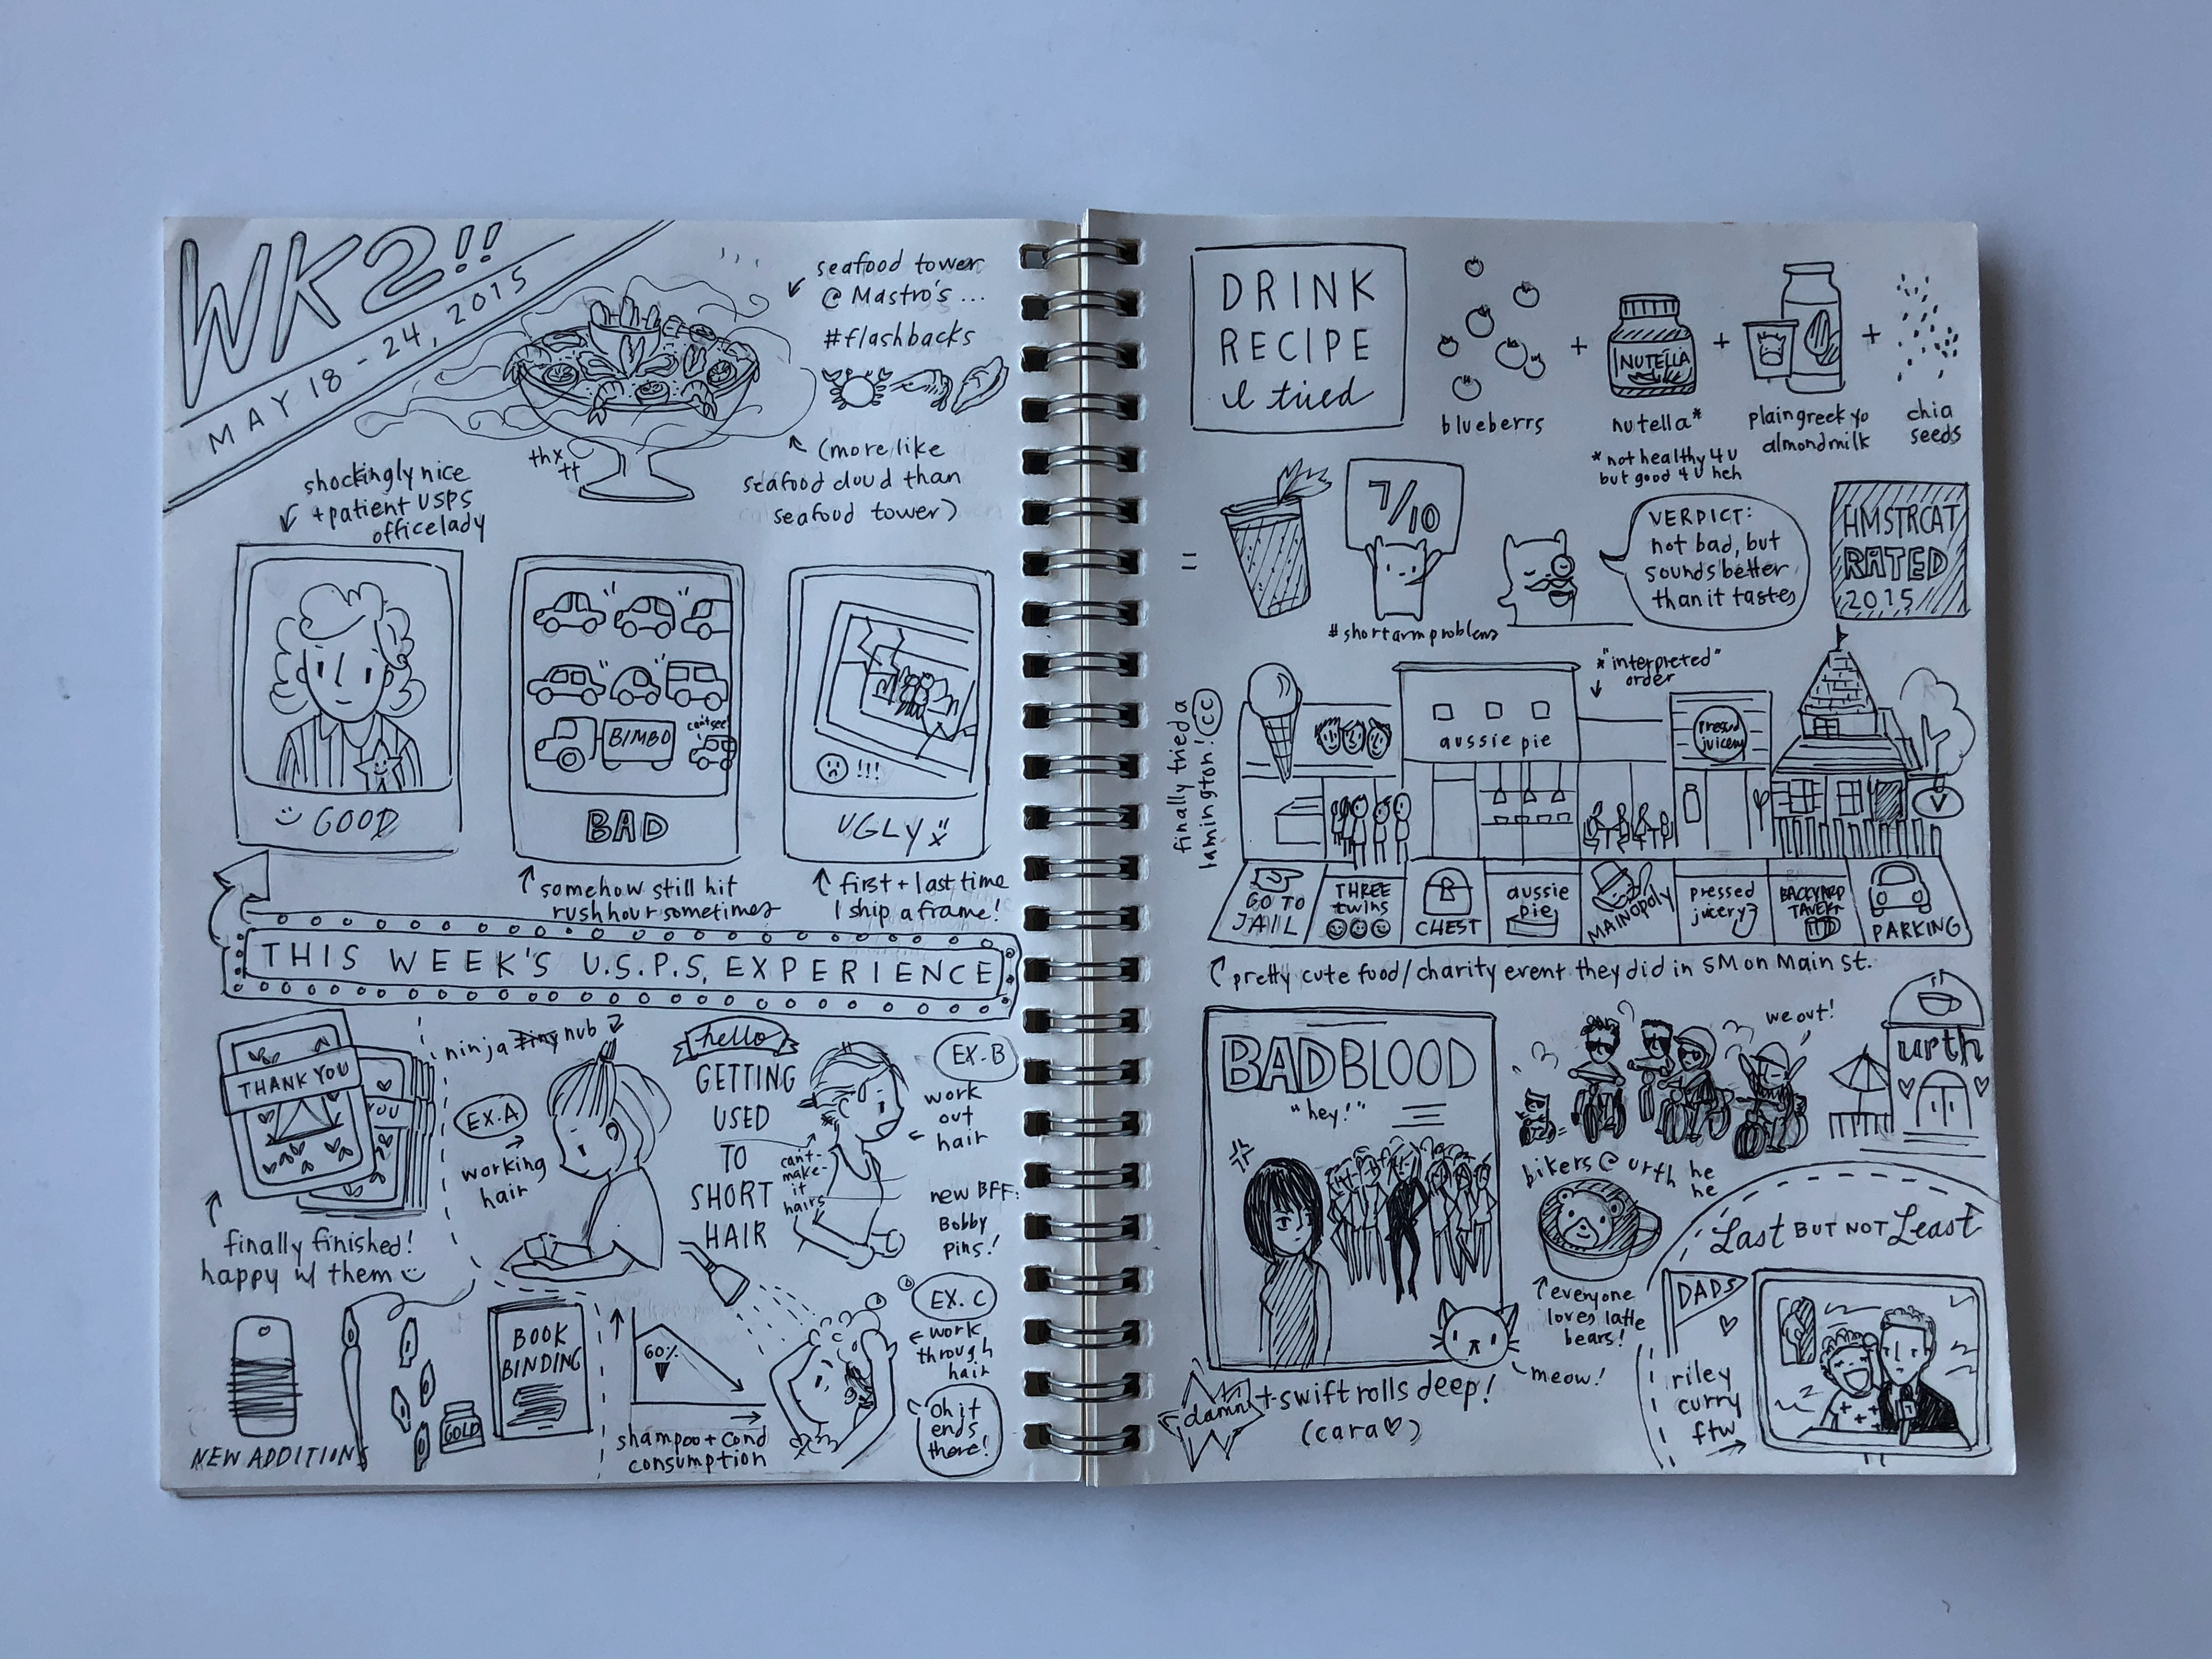 WK2!!
MAY 18 - 24, 2015
seafood tower
@ Mastro's ...
#flashbacks
(more like
seafood cloud than
seafood tower)
thx
tt
shockingly nice
+ patient USPS
office lady
GOOD
BIMBO
can't see!
BAD
somehow still hit
rush hour sometimes
!!!
UGLY
first + last time
I ship a frame!
THIS WEEK'S U.S.P.S. EXPERIENCE
THANK YOU
YOU
finally finished!
happy w/ them
NEW ADDITIONS
GOLD
BOOK
BINDING
ninja tiny nub
EX. A
working
hair
hello
GETTING
USED
TO
SHORT
HAIR
EX. B
work
out
hair
can't-
make-
it
hairs
new BFF:
Bobby
pins!
60%
shampoo + cond
consumption
EX. C
work
through
hair
Oh it
ends
there!
DRINK
RECIPE
I tried
blueberrs
+
NUTELLA
nutella*
*not healthy 4 U
but good 4 U heh
+
plain greek yo
almond milk
+
chia
seeds
=
7/10
#shortarmproblems
VERDICT:
not bad, but
sounds better
than it tastes
HMSTRCAT
RATED
2015
finally tried a
lamington!
CC
*"interpreted"
order
aussie pie
pressed
juicery
V
GO TO
JAIL
THREE
twins
CHEST
aussie
pie
MAINOPOLY
pressed
juicery
BACKYARD
TAVERN
PARKING
pretty cute food/charity event they did in SM on Main St.
BAD BLOOD
"hey!"
meow!
damn!
t-swift rolls deep!
(cara♡)
we out!
urth
bikers @ urth he
he
everyone
loves latte
bears!
Last BUT NOT Least
DADS
riley
curry
ftw